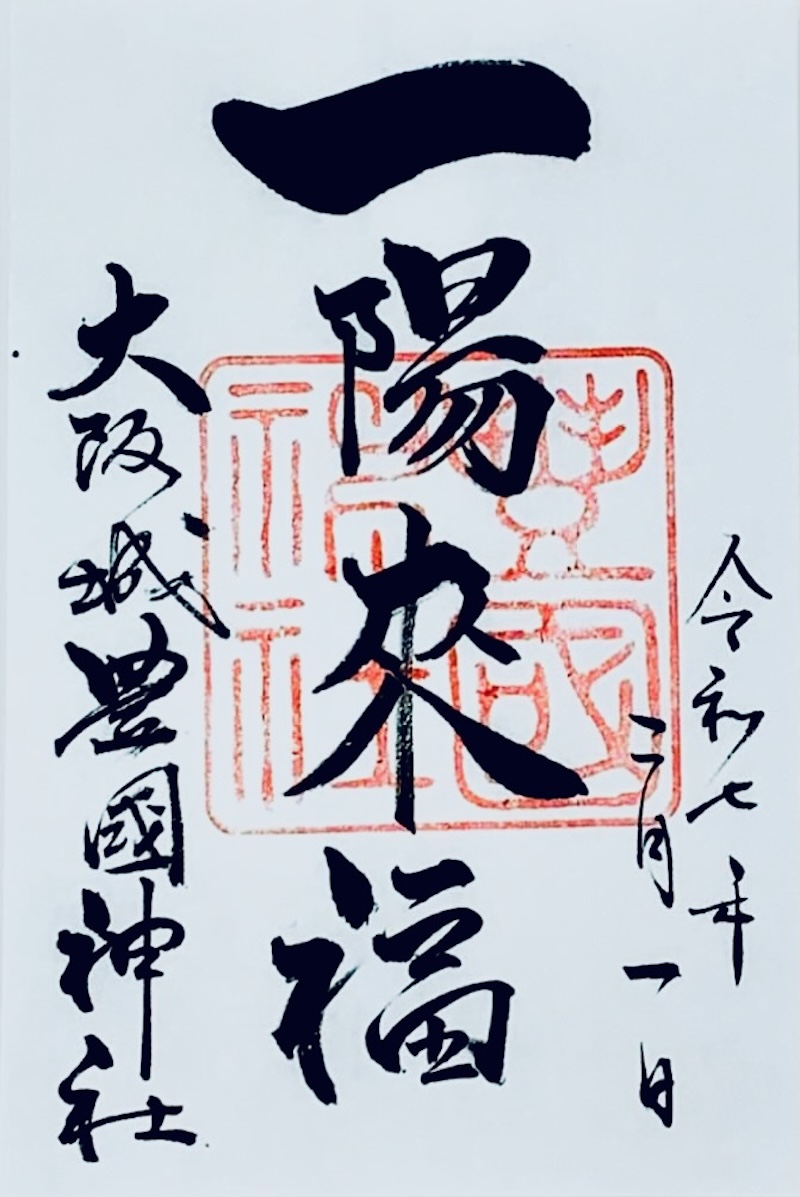 令和七年
二月一日
一陽来福
豐國
神社
大阪城豊國神社